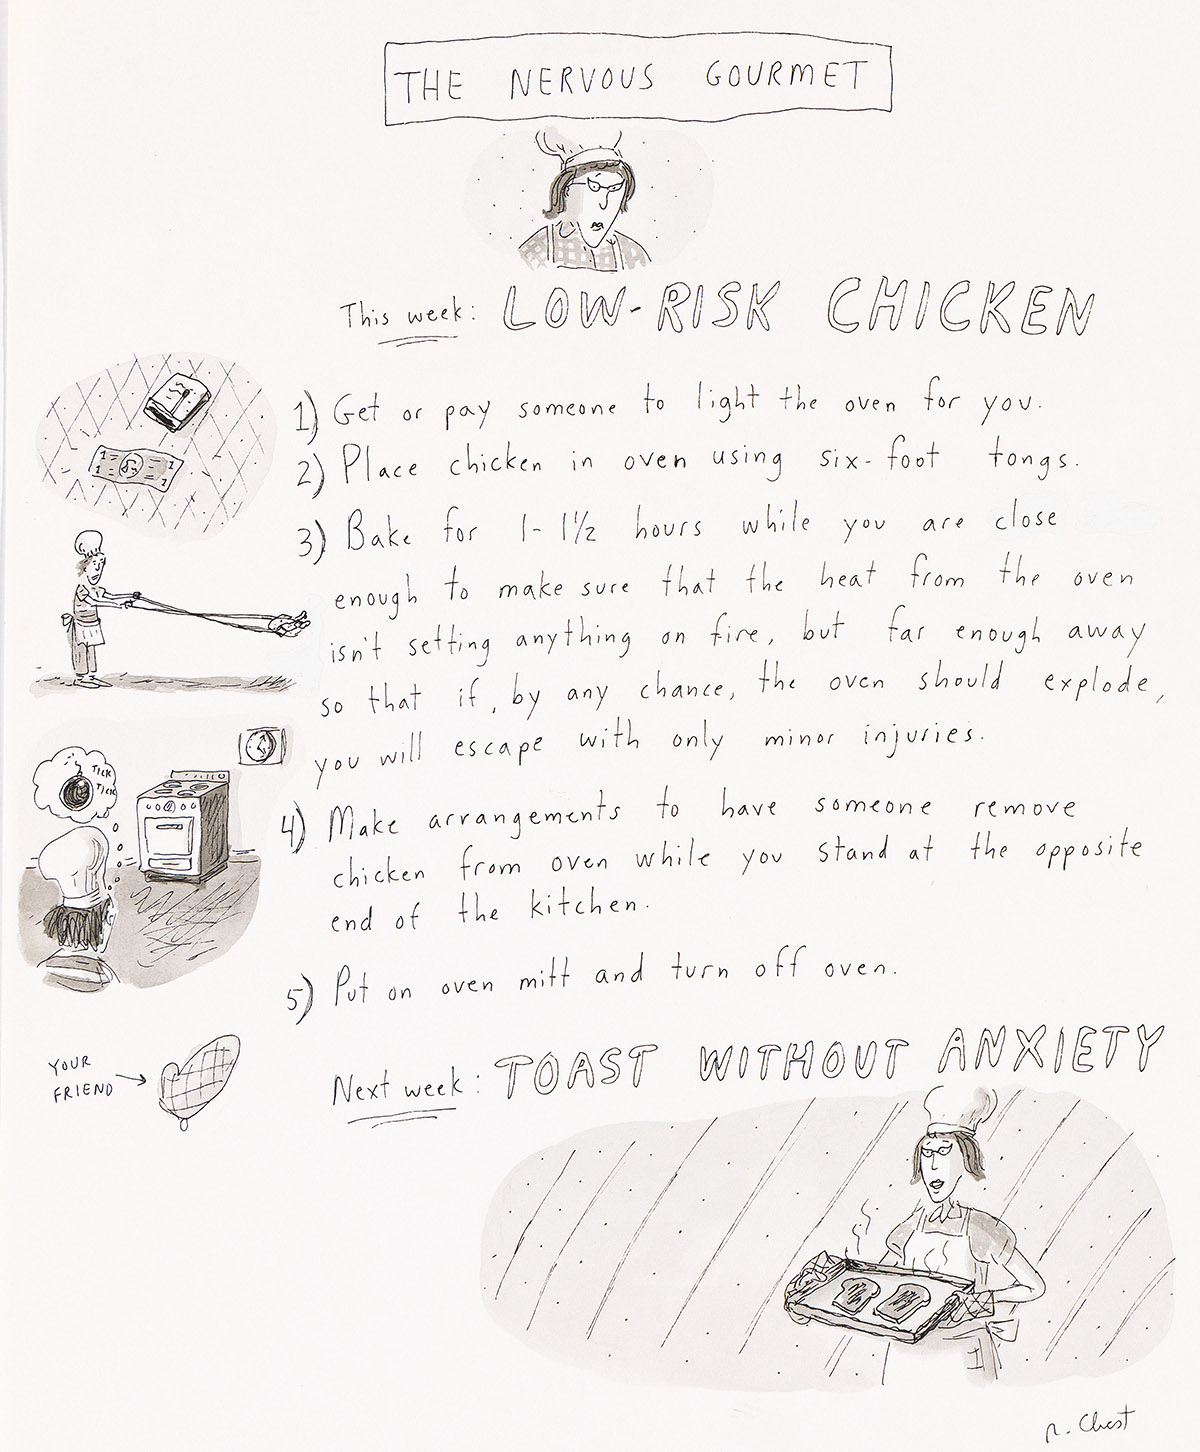 THE NERVOUS GOURMET
This week: LOW-RISK CHICKEN
1) Get or pay someone to light the oven for you.
2) Place chicken in oven using six-foot tongs.
3) Bake for 1-1½ hours while you are close
enough to make sure that the heat from the oven
isn't setting anything on fire, but far enough away
so that if, by any chance, the oven should explode,
you will escape with only minor injuries.
TICK
TICK
4) Make arrangements to have someone remove
chicken from oven while you stand at the opposite
end of the kitchen.
5) Put on oven mitt and turn off oven.
YOUR
FRIEND
Next week: TOAST WITHOUT ANXIETY
R. Chast